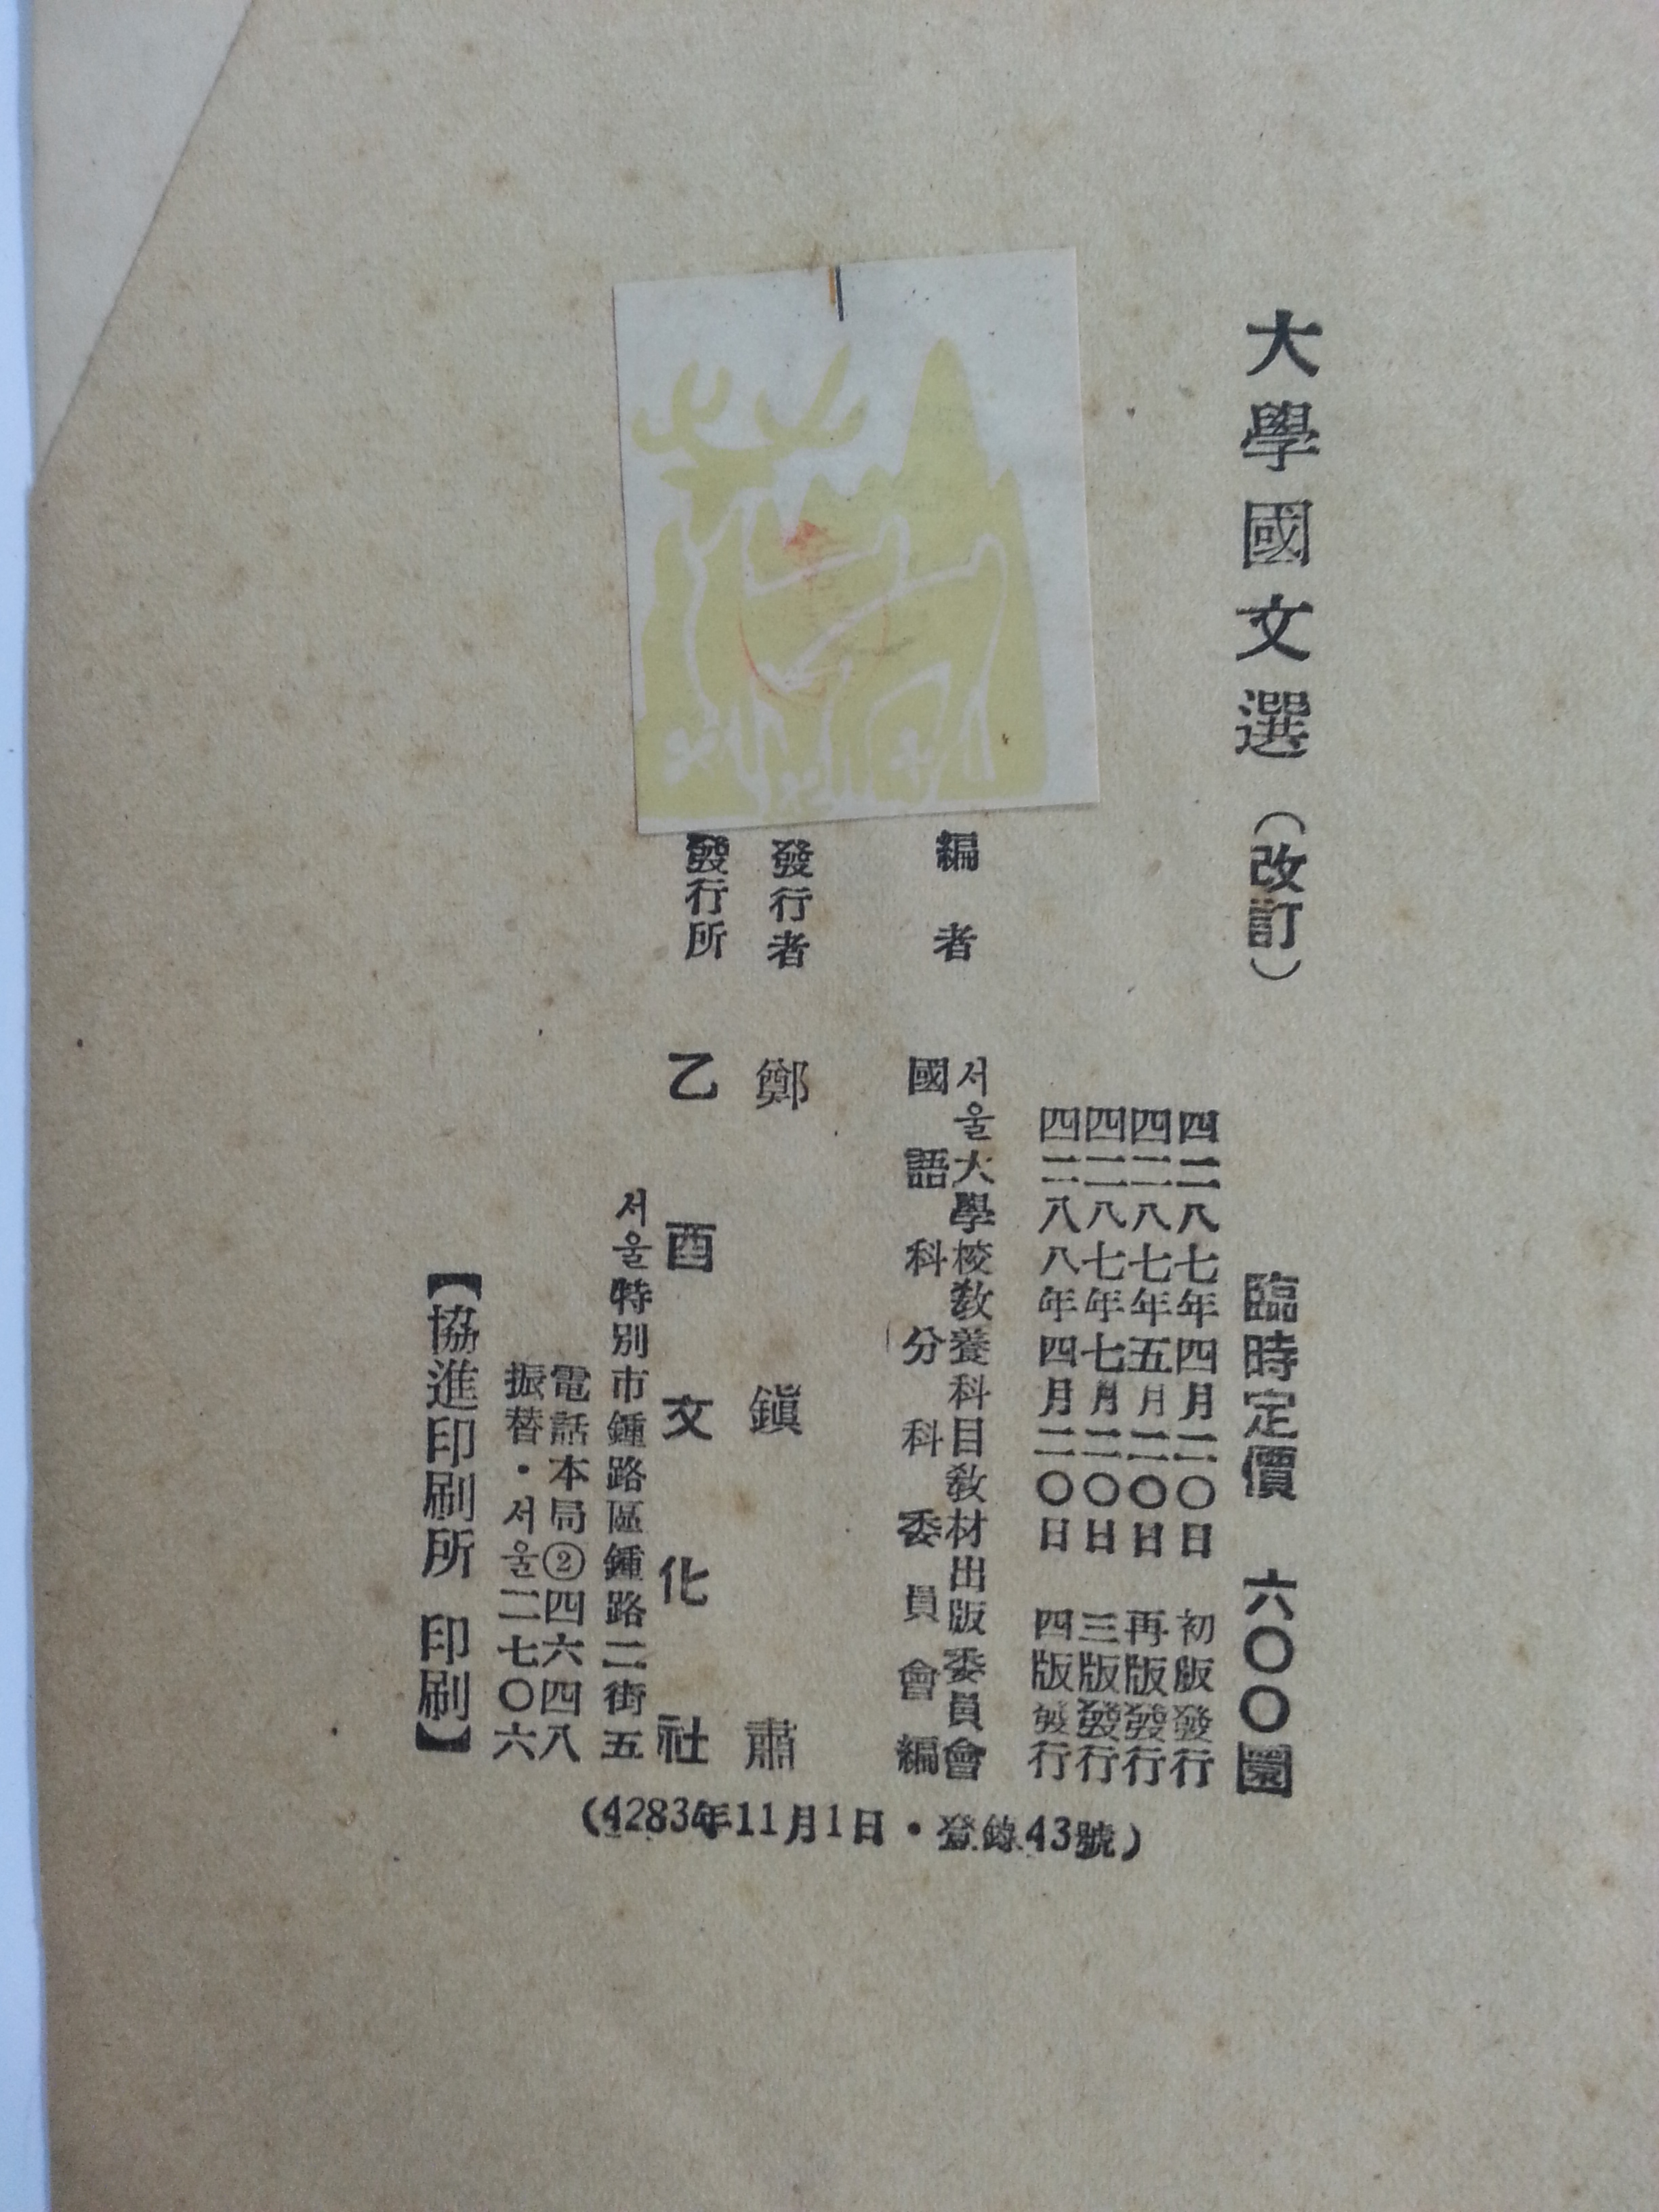 大學國文選（改訂）
臨時定價 六〇〇圜
四二八七年四月二〇日 初版發行
四二八七年五月二〇日 再版發行
四二八七年七月二〇日 三版發行
四二八八年四月二〇日 四版發行
編者
서울大學校敎養科目敎材出版委員會
國語科分科委員會編
發行者 鄭鎭肅
發行所 乙酉文化社
서울特別市鍾路區鍾路二街五
電話本局②四六四八
振替・서울二七〇六
【協進印刷所 印刷】
(4283年11月1日・登錄43號)